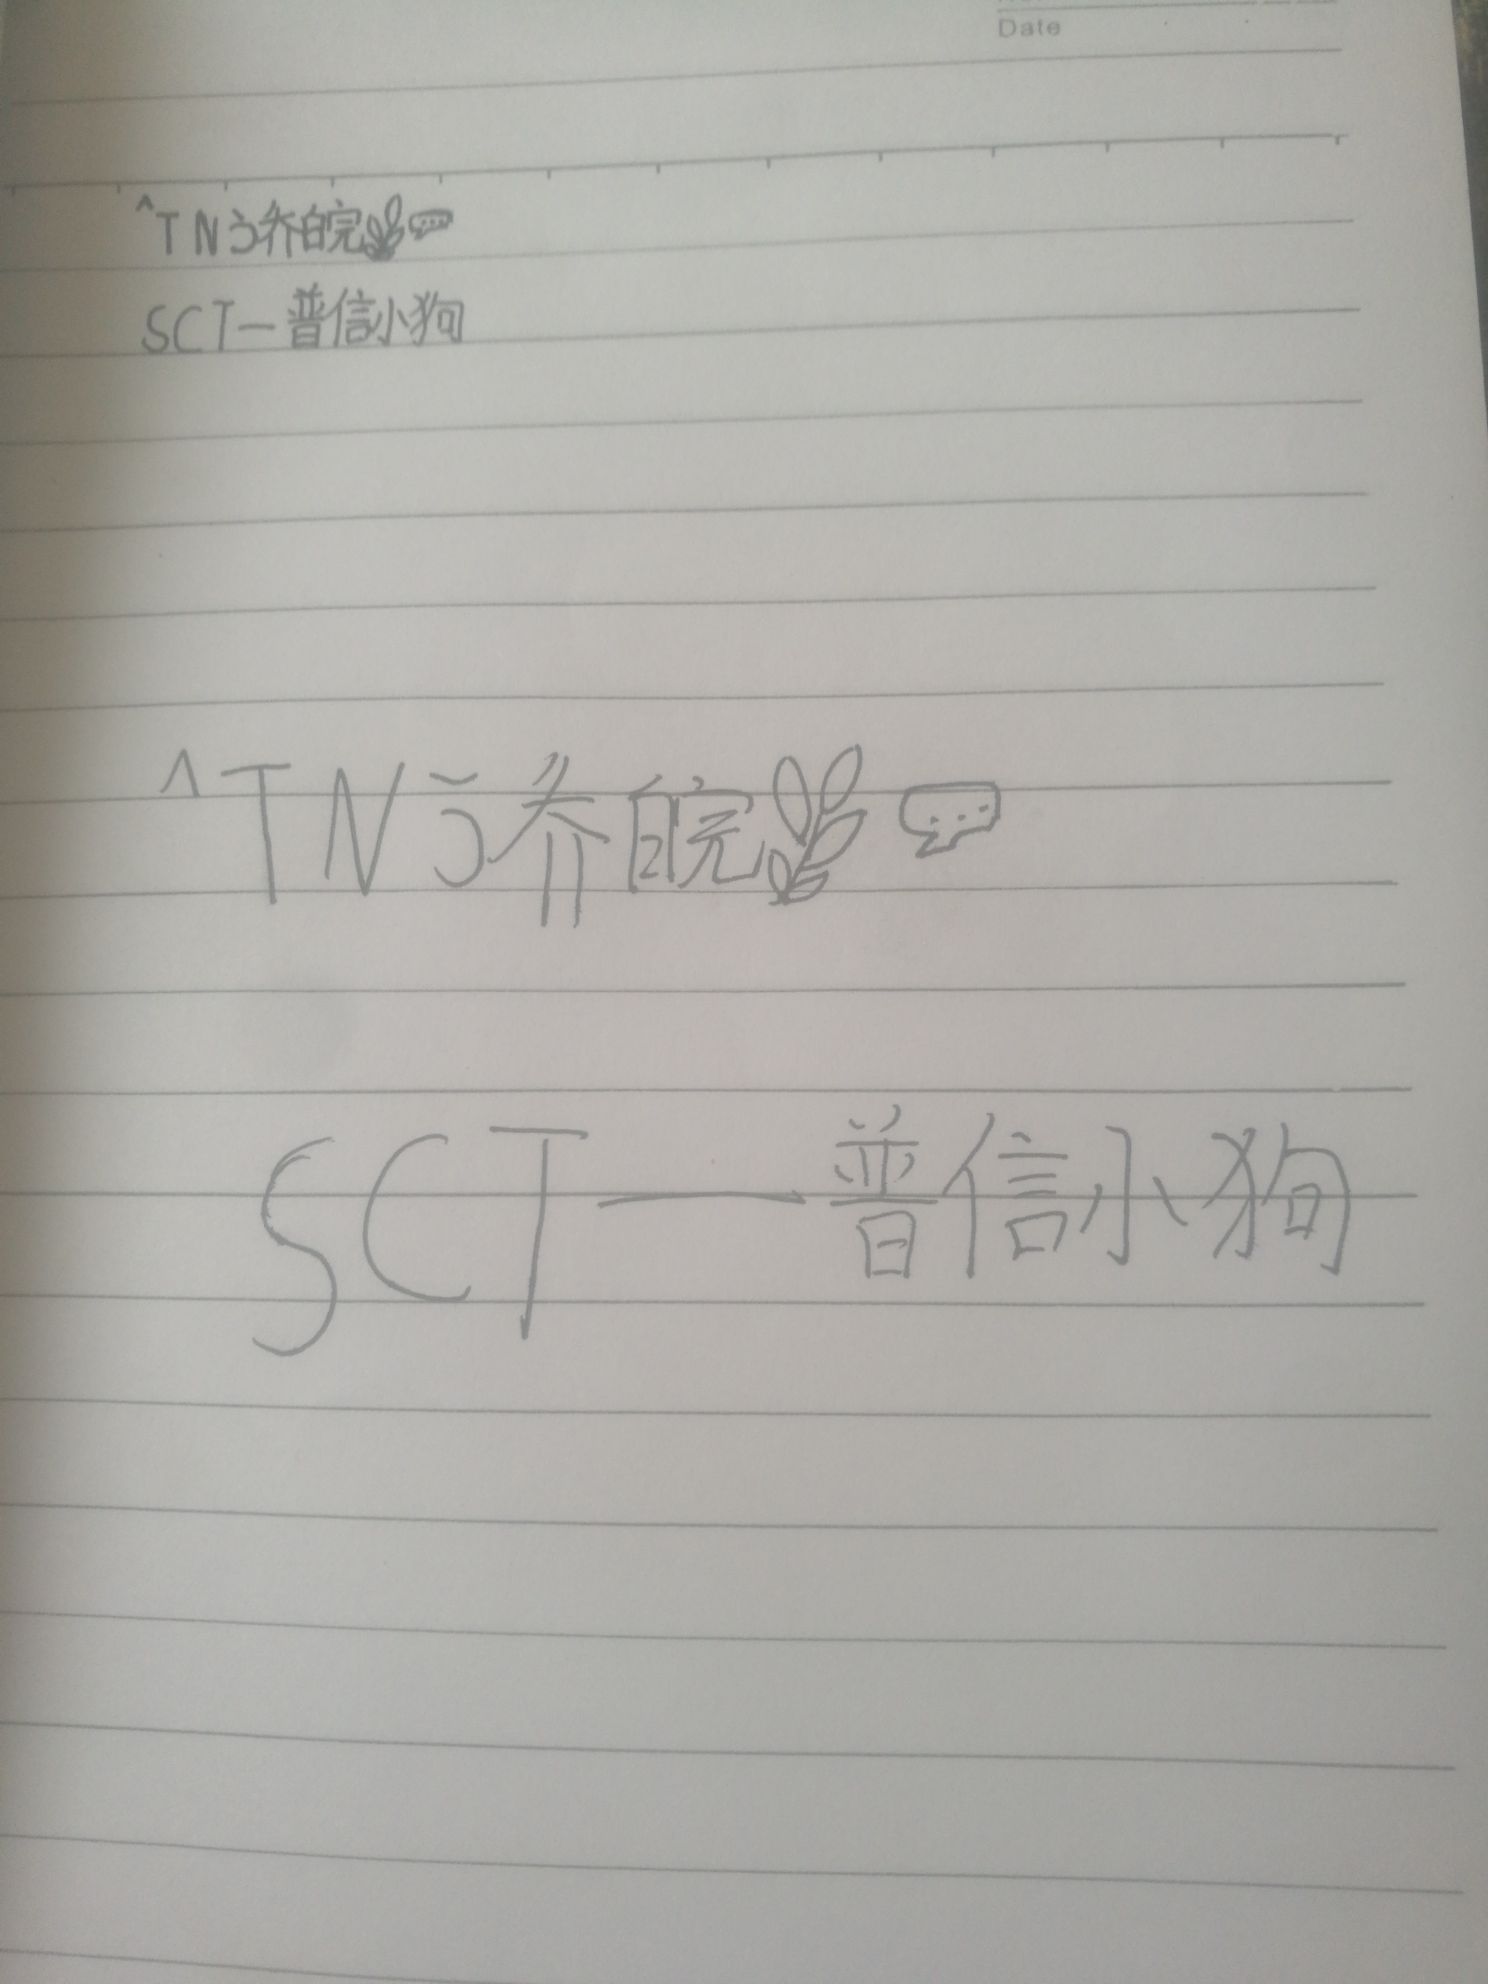 Date
^TNう乔皖🌿💬
SCT一普信小狗
^TNう乔皖🌿💬
SCT一普信小狗